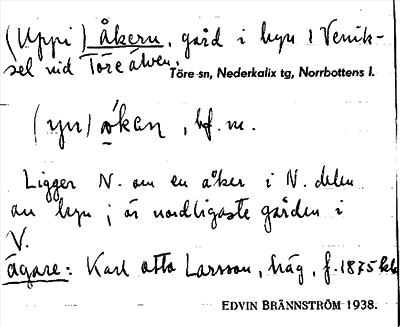 (Uppi) åkern, gård i byn i Venik-
sel vid Töreälven.
Töre sn, Nederkalix tg, Norrbottens l.
(yn) åkan, bf. m.
Ligger N. om en åker i N. delen
av byn; är nordligaste gården i
V.
ägare: Karl Otto Larsson, häg, f. 1875
EDVIN BRÄNNSTRÖM 1938.